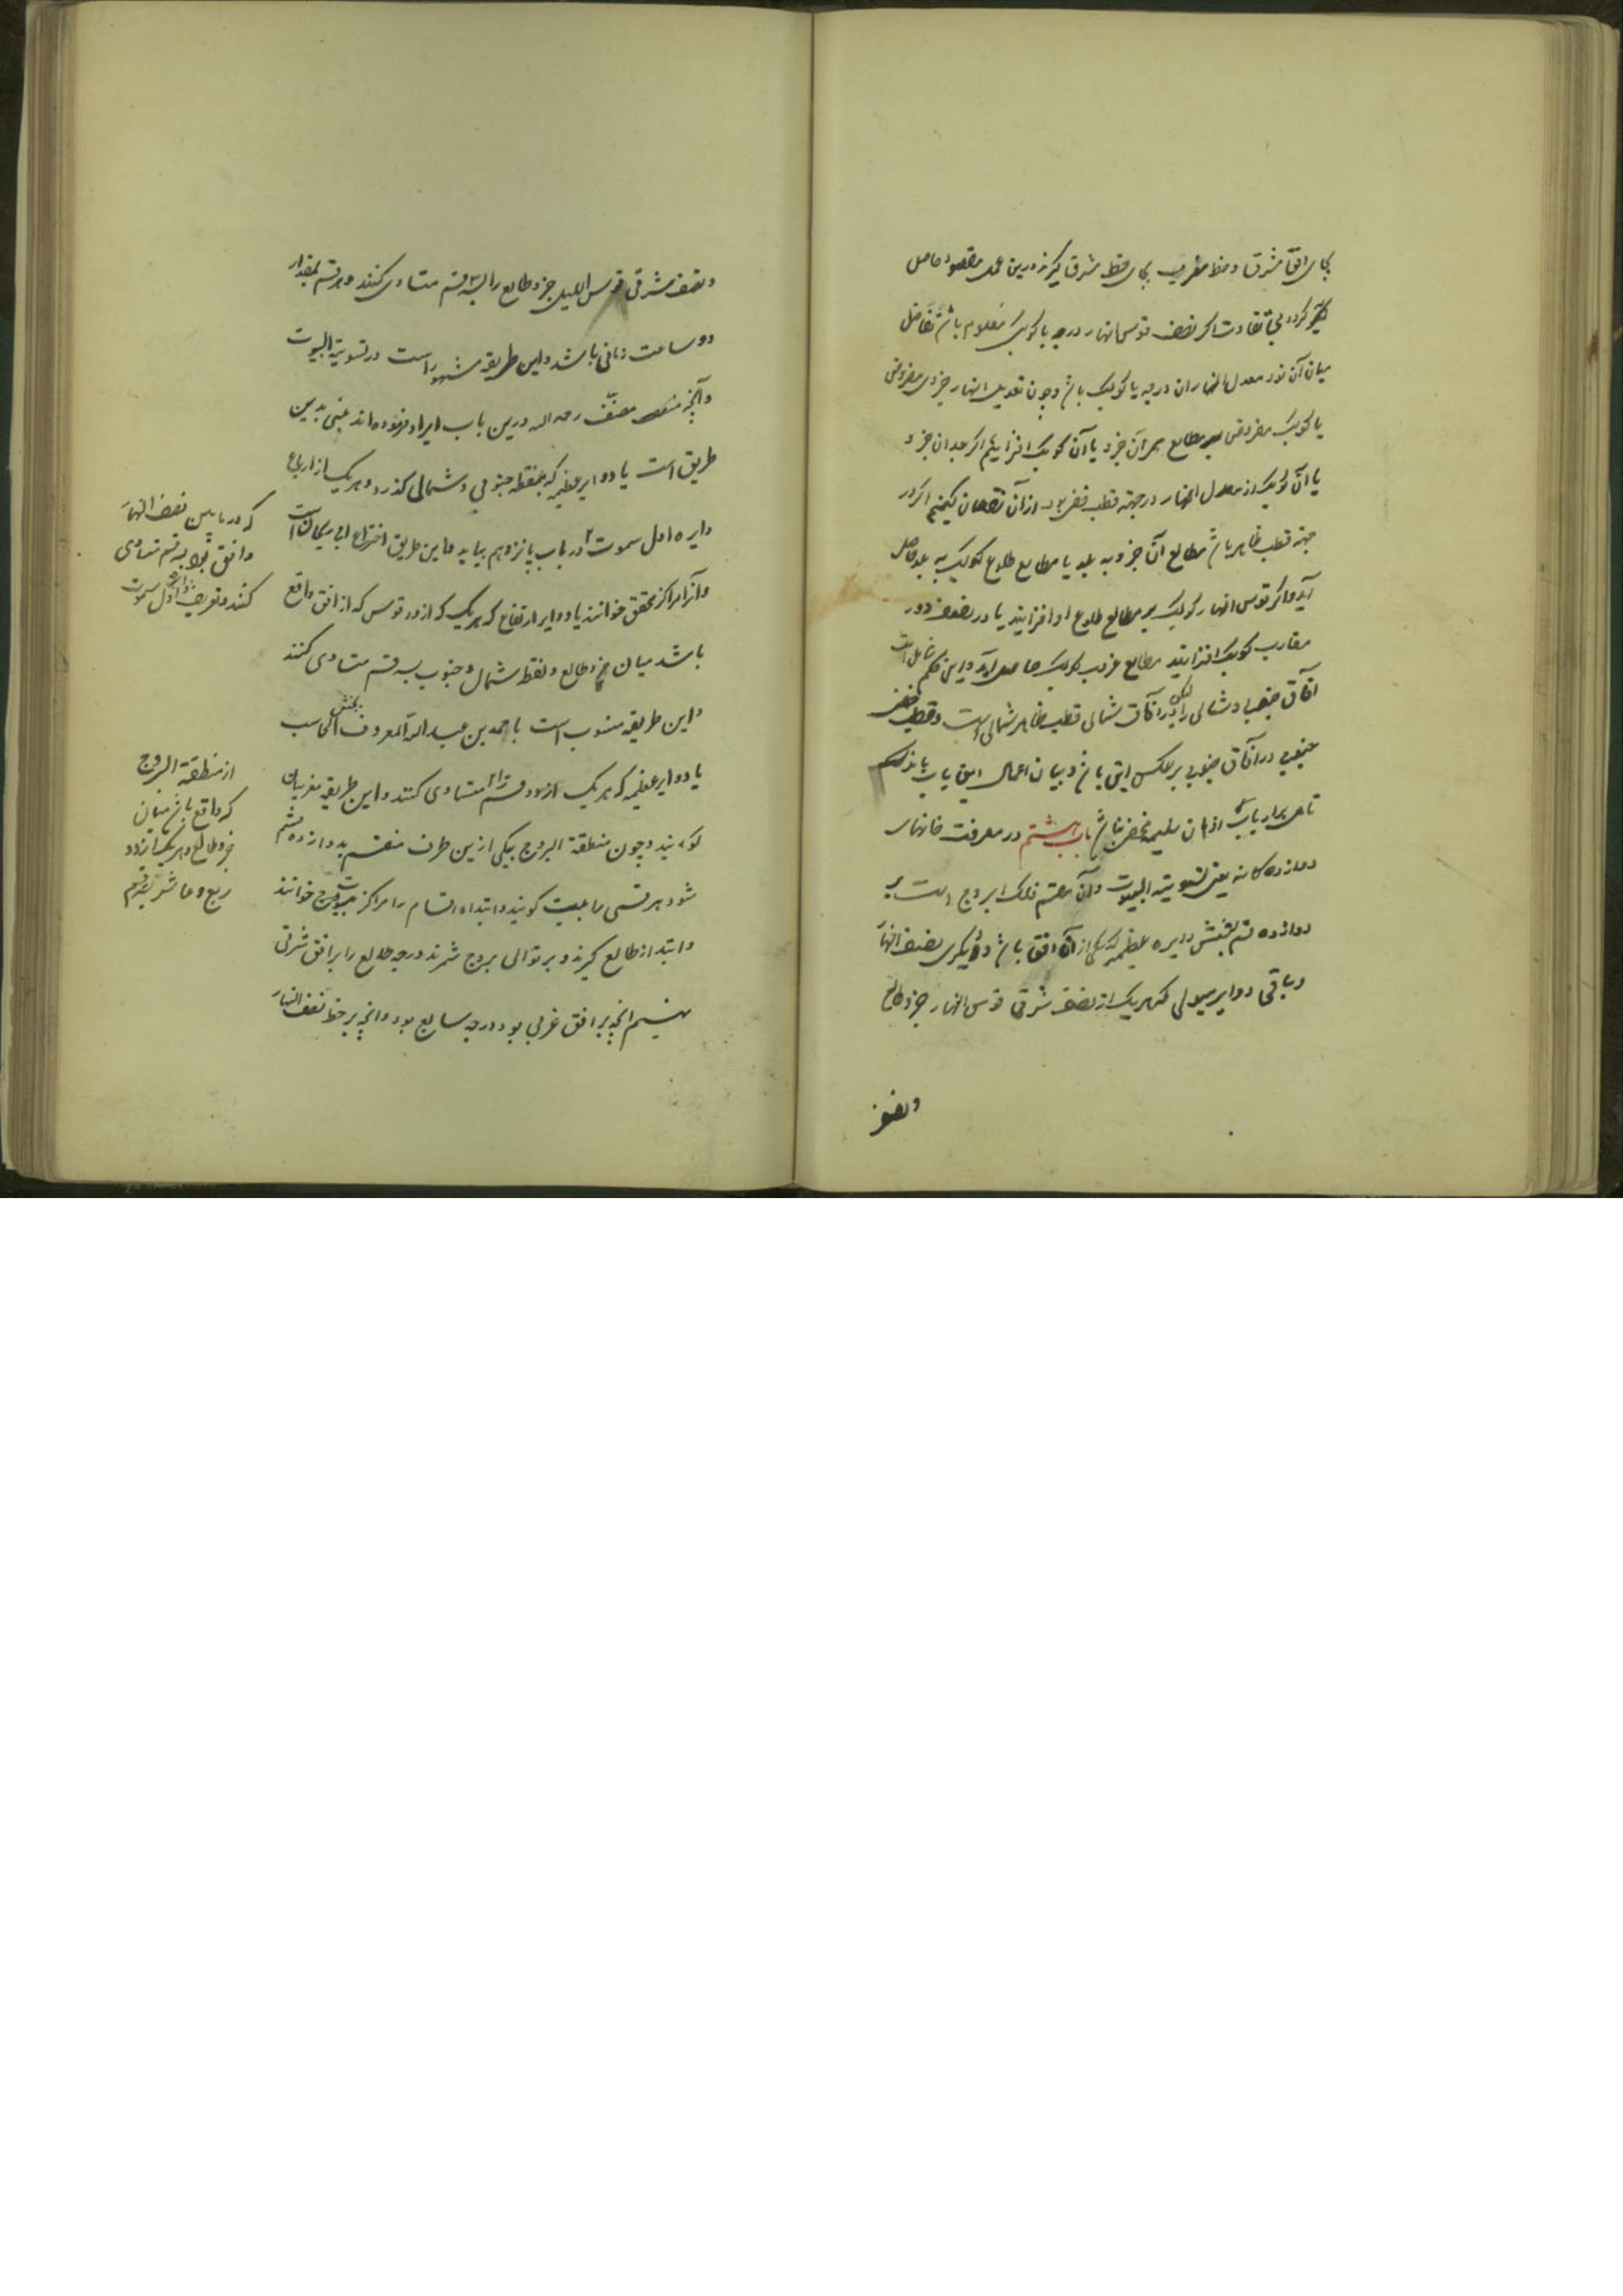 بجای افق مشرق و خط مغرب بجای خط مشرق گیرند درین عمل مقصود حاصل
گردد بی تفاوت اگر نصف قوس النهار درجه یا کوکب معلوم باشد تفاضل
میان آن و ربع معدل النهار آن درجه یا کوکب باشد و چون تعدیل النهار جزوی مفروض
یا کوکب مفروض بر مطالع ممر آن جزو یا آن کوکب افزاییم اگر بعد آن جزو
یا آن کوکب از معدل النهار در جهة قطب خفی بود از آن نقصان کنیم اگر در
جهة قطب ظاهر باشد مطالع آن جزو به بلد یا مطالع طلوع کوکب به بلد حاصل
آید و اگر قوس النهار کوکب بر مطالع طلوع او افزایند یا در نصف دور
مقارب کوکب افزایند مطالع غروب کوکب حاصل آید و این حکم شامل است
آفاق جنوبی و شمالی را لیکن در آفاق شمالی قطب ظاهر شمالی است و قطب خفی
جنوبی در آفاق جنوبی بر عکس این باشد و بیان اعمال این باب باندک
تاملی بر ارباب اذهان سلیمه مخفی نباشد باب هشتم در معرفت خانهای
دوازده کانه یعنی تسویة البیوت و آن تقسیم فلک البروج است بر
دوازده قسم بشش دایره عظیمه که یکی از آن افق باشد و دیگری نصف النهار
و باقی دوایر میولی که هر یک از نصف شرقی قوس النهار جزو طالع
و نصف
و نصف شرقی قوس اللیل جزو طالع را بسه قسم متساوی کنند و هر قسم بمقدار
دو ساعت زمانی باشد و این طریقه مشهور است در تسویة البیوت
و آنچه مصنف رحمه الله درین باب ایراد فرموده اند مبنی بدین
طریق است یا دوایر عظیمه که بنقطه جنوبی و شمالی گذرد و هر یک از ارباع
دایره اول سموت در باب پانزدهم بیاید و این طریق اختراع ابی ریحان است
و آنرا مراکز محقق خوانند یا دوایر ارتفاع که هر یک از دو قوس که از افق واقع
باشد میان جزو طالع و نقطه شمال و جنوب بسه قسم متساوی کنند
و این طریقه منسوب است باحمد بن عبد الله المعروف بحبش الحاسب
یا دوایر عظیمه که هر یک از دو قسم را متساوی کنند و این طریقه مغربیان
گویند و چون منطقة البروج بیکی ازین طرف منقسم بدوازده قسم
شود هر قسمی را بیت گویند و ابتداء اقسام را مراکز بیوت خوانند
و ابتدا از طالع گیرند و بر توالی بروج شمرند درجه طالع را بر افق شرقی
نهیم آنچه بر افق غربی بود درجه سابع بود و آنچه بر خط نصف النهار
که در مابین نصف النهار
و افق بود به قسم متساوی
کنند و تعریف دایره اول سموت
از منطقة البروج
که واقع باشد میان
جزو طالع و هر یک از دو
رابع و عاشر بسه قسم